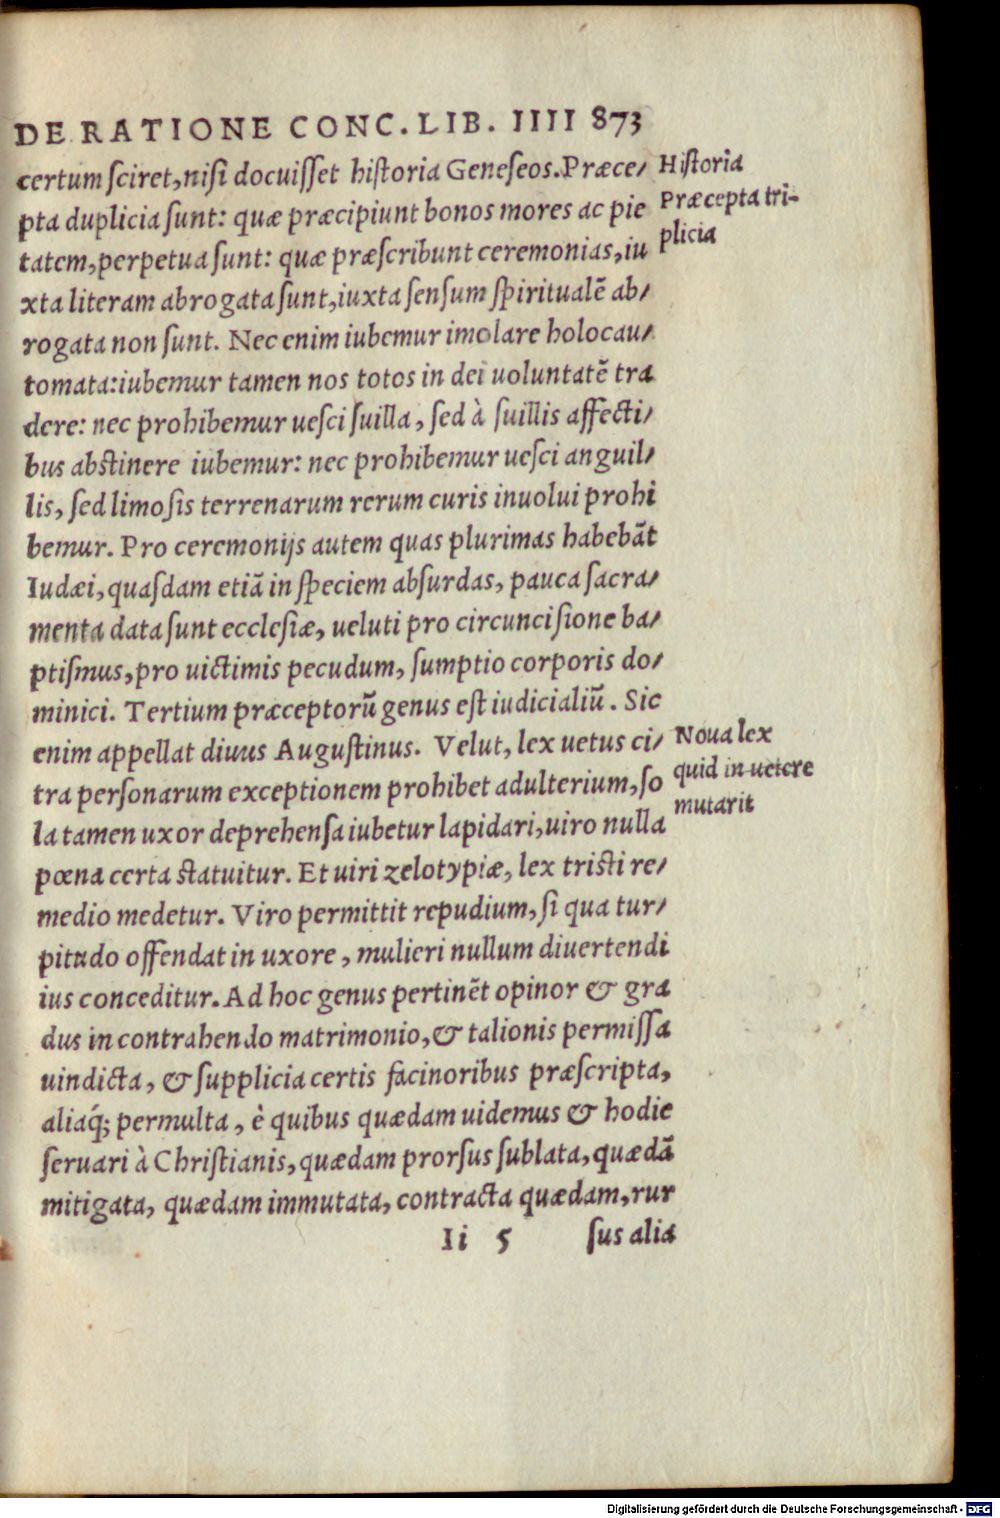 DE RATIONE CONC. LIB. IIII 873
certum sciret, nisi docuisset historia Geneseos. Præce/
pta duplicia sunt: quæ præcipiunt bonos mores ac pie
tatem, perpetua sunt: quæ præscribunt ceremonias, iu
xta literam abrogata sunt, iuxta sensum spiritualē ab/
rogata non sunt. Nec enim iubemur imolare holocau/
tomata: iubemur tamen nos totos in dei uoluntatē tra
dere: nec prohibemur uesci suilla, sed à suillis affecti/
bus abstinere iubemur: nec prohibemur uesci anguil/
lis, sed limosis terrenarum rerum curis inuolui prohi
bemur. Pro ceremonijs autem quas plurimas habebāt
Iudæi, quasdam etiā in speciem absurdas, pauca sacra/
menta data sunt ecclesiæ, ueluti pro circuncisione ba/
ptismus, pro uictimis pecudum, sumptio corporis do/
minici. Tertium præceptorū genus est iudicialiū. Sic
enim appellat diuus Augustinus. Velut, lex uetus ci/
tra personarum exceptionem prohibet adulterium, so
la tamen uxor deprehensa iubetur lapidari, uiro nulla
pœna certa statuitur. Et uiri zelotypiæ, lex tristi re/
medio medetur. Viro permittit repudium, si qua tur/
pitudo offendat in uxore, mulieri nullum diuertendi
ius conceditur. Ad hoc genus pertinēt opinor & gra
dus in contrahendo matrimonio, & talionis permissa
uindicta, & supplicia certis facinoribus præscripta,
aliaq́; permulta, è quibus quædam uidemus & hodie
seruari à Christianis, quædam prorsus sublata, quædā
mitigata, quædam immutata, contracta quædam, rur
Ii 5 sus alia
Historia
Præcepta tri-
plicia
Noua lex
quid in uetere
mutarit
Digitalisierung gefördert durch die Deutsche Forschungsgemeinschaft - DFG